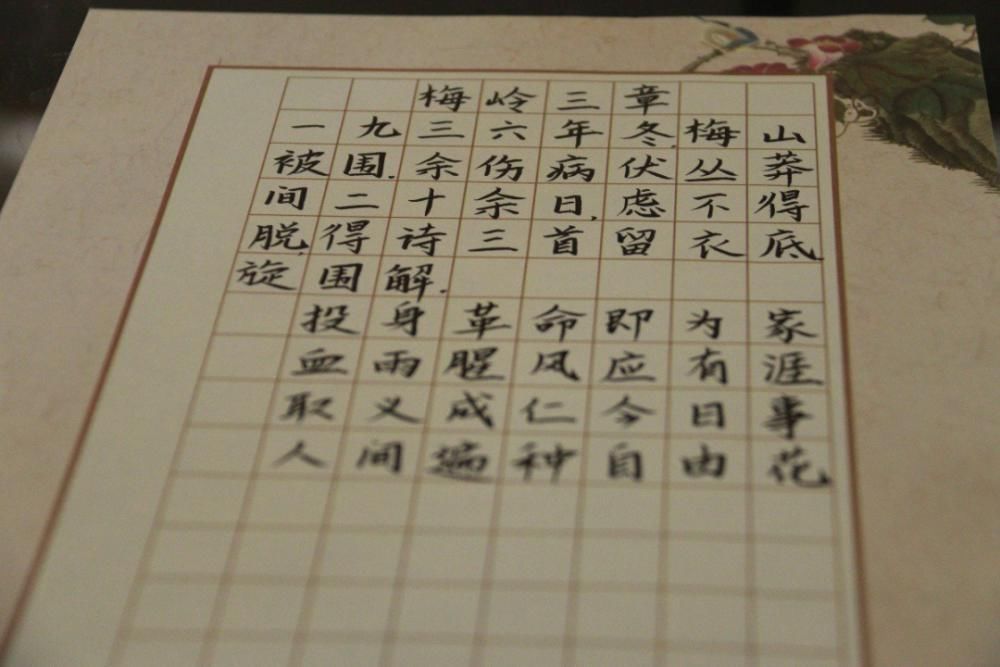 梅岭三章
一九三六年冬,梅山
被围.余伤病伏丛莽
间二十余日,虑不得
脱,得诗三首留衣底
旋围解.
投身革命即为家
血雨腥风应有涯
取义成仁今日事
人间遍种自由花